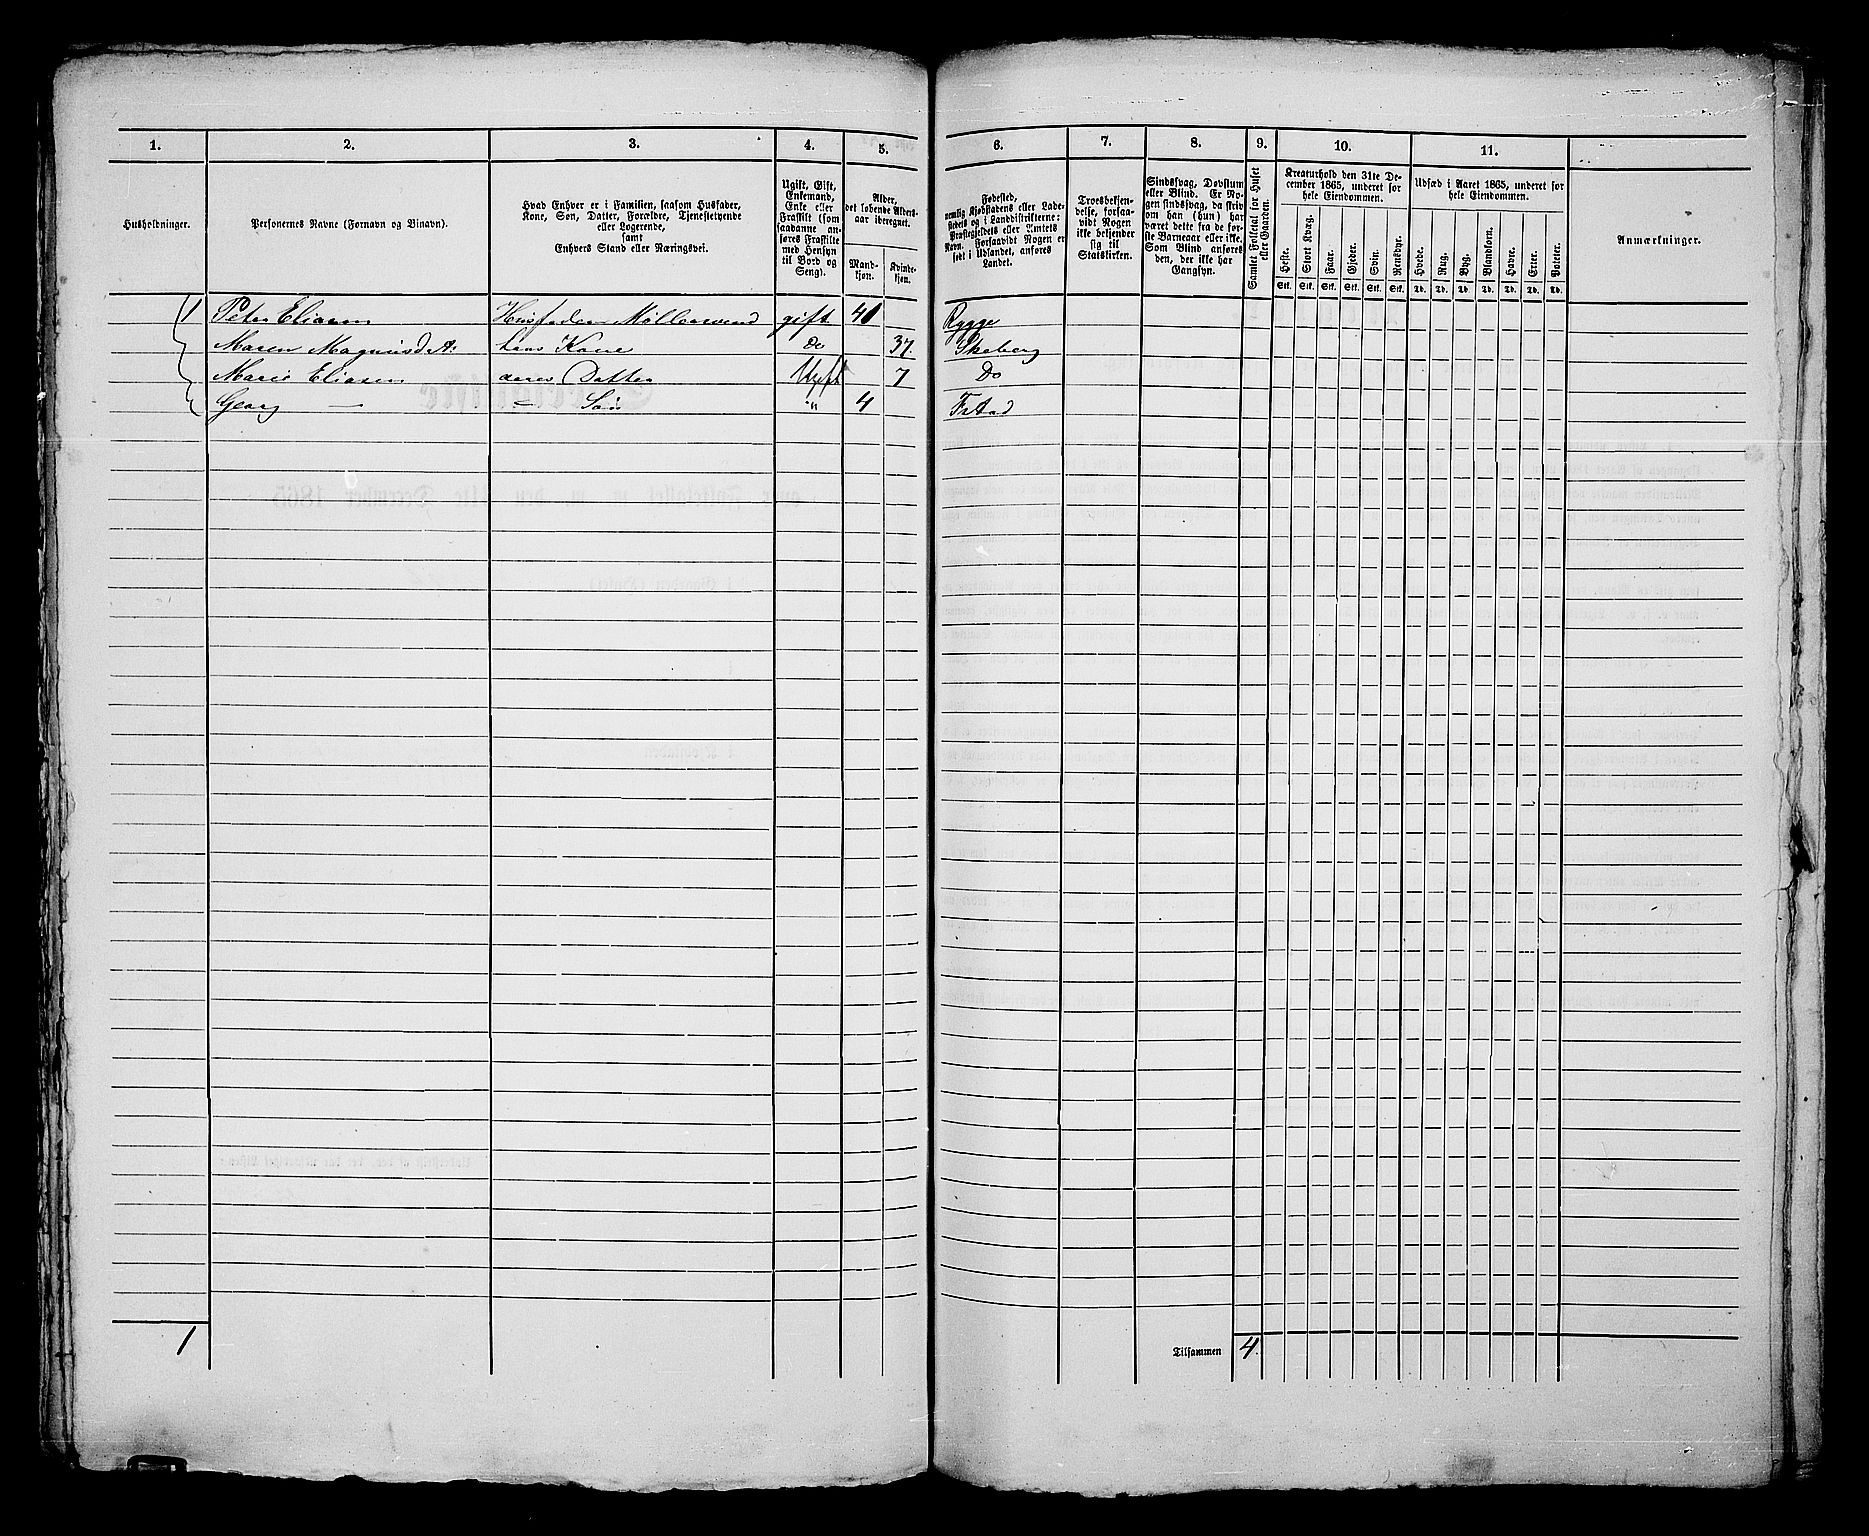 1. 2. 3. 4. 5. 6. 7. 8. 9. 10. 11.
Husholdninger.
Personernes Navne (Fornavn og Binavn).
Hvad Enhver er i Familien, saasom Husfader,
Kone, Søn, Datter, Forældre, Tjenestetyende
eller Logerende,
samt
Enhvers Stand eller Næringsvei.
Ugift, Gift,
Enkemand,
Enke eller
Fraskilt (som
saadanne an-
føres Fraskilte
med Hensyn
til Bord og
Seng).
Alder,
det løbende Alders-
aar iberegnet.
Mand-
kjøn.
Kvinde-
kjøn.
Fødested,
nemlig Kjøbstadens eller Lade-
stedets og i Landdistrikterne:
Præstegjeldets eller Amtets
Navn. Forsaavidt Nogen er
født i Udlandet, anføres
Landet.
Troesbekjen-
delse, forsaa-
vidt Nogen
ikke bekjender
sig til
Statskirken.
Sindssvag, Døvstum
eller Blind. Er No-
gen sindssvag, da skriv
om han (hun) har
været dette fra de før-
ste Barneaar eller ikke.
Som Blind anføres
den, der ikke har
Gangsyn.
Samlet Folketal for Huset
eller Gaarden.
Kreaturhold den 31te De-
cember 1865, underet for
hele Eiendommen.
Heste. Stort Kvæg. Faar. Gjeder. Svin. Rensdyr.
Stk. Stk. Stk. Stk. Stk. Stk.
Udsæd i Aaret 1865, underet for
hele Eiendommen.
Hvede. Rug. Byg. Blandkorn. Havre. Erter. Poteter.
Td. Td. Td. Td. Td. Td. Td.
Anmærkninger.
1 Peter Eliasen Husfader Møllersvend gift 40 Rygge
Maren Magnusd.A: hans Kone Do 37. Skeberg
Marie Eliasen deres Datter Ugift 7 Do
Georg — - Søn " 4 F.stad
1 Tilsammen 4.